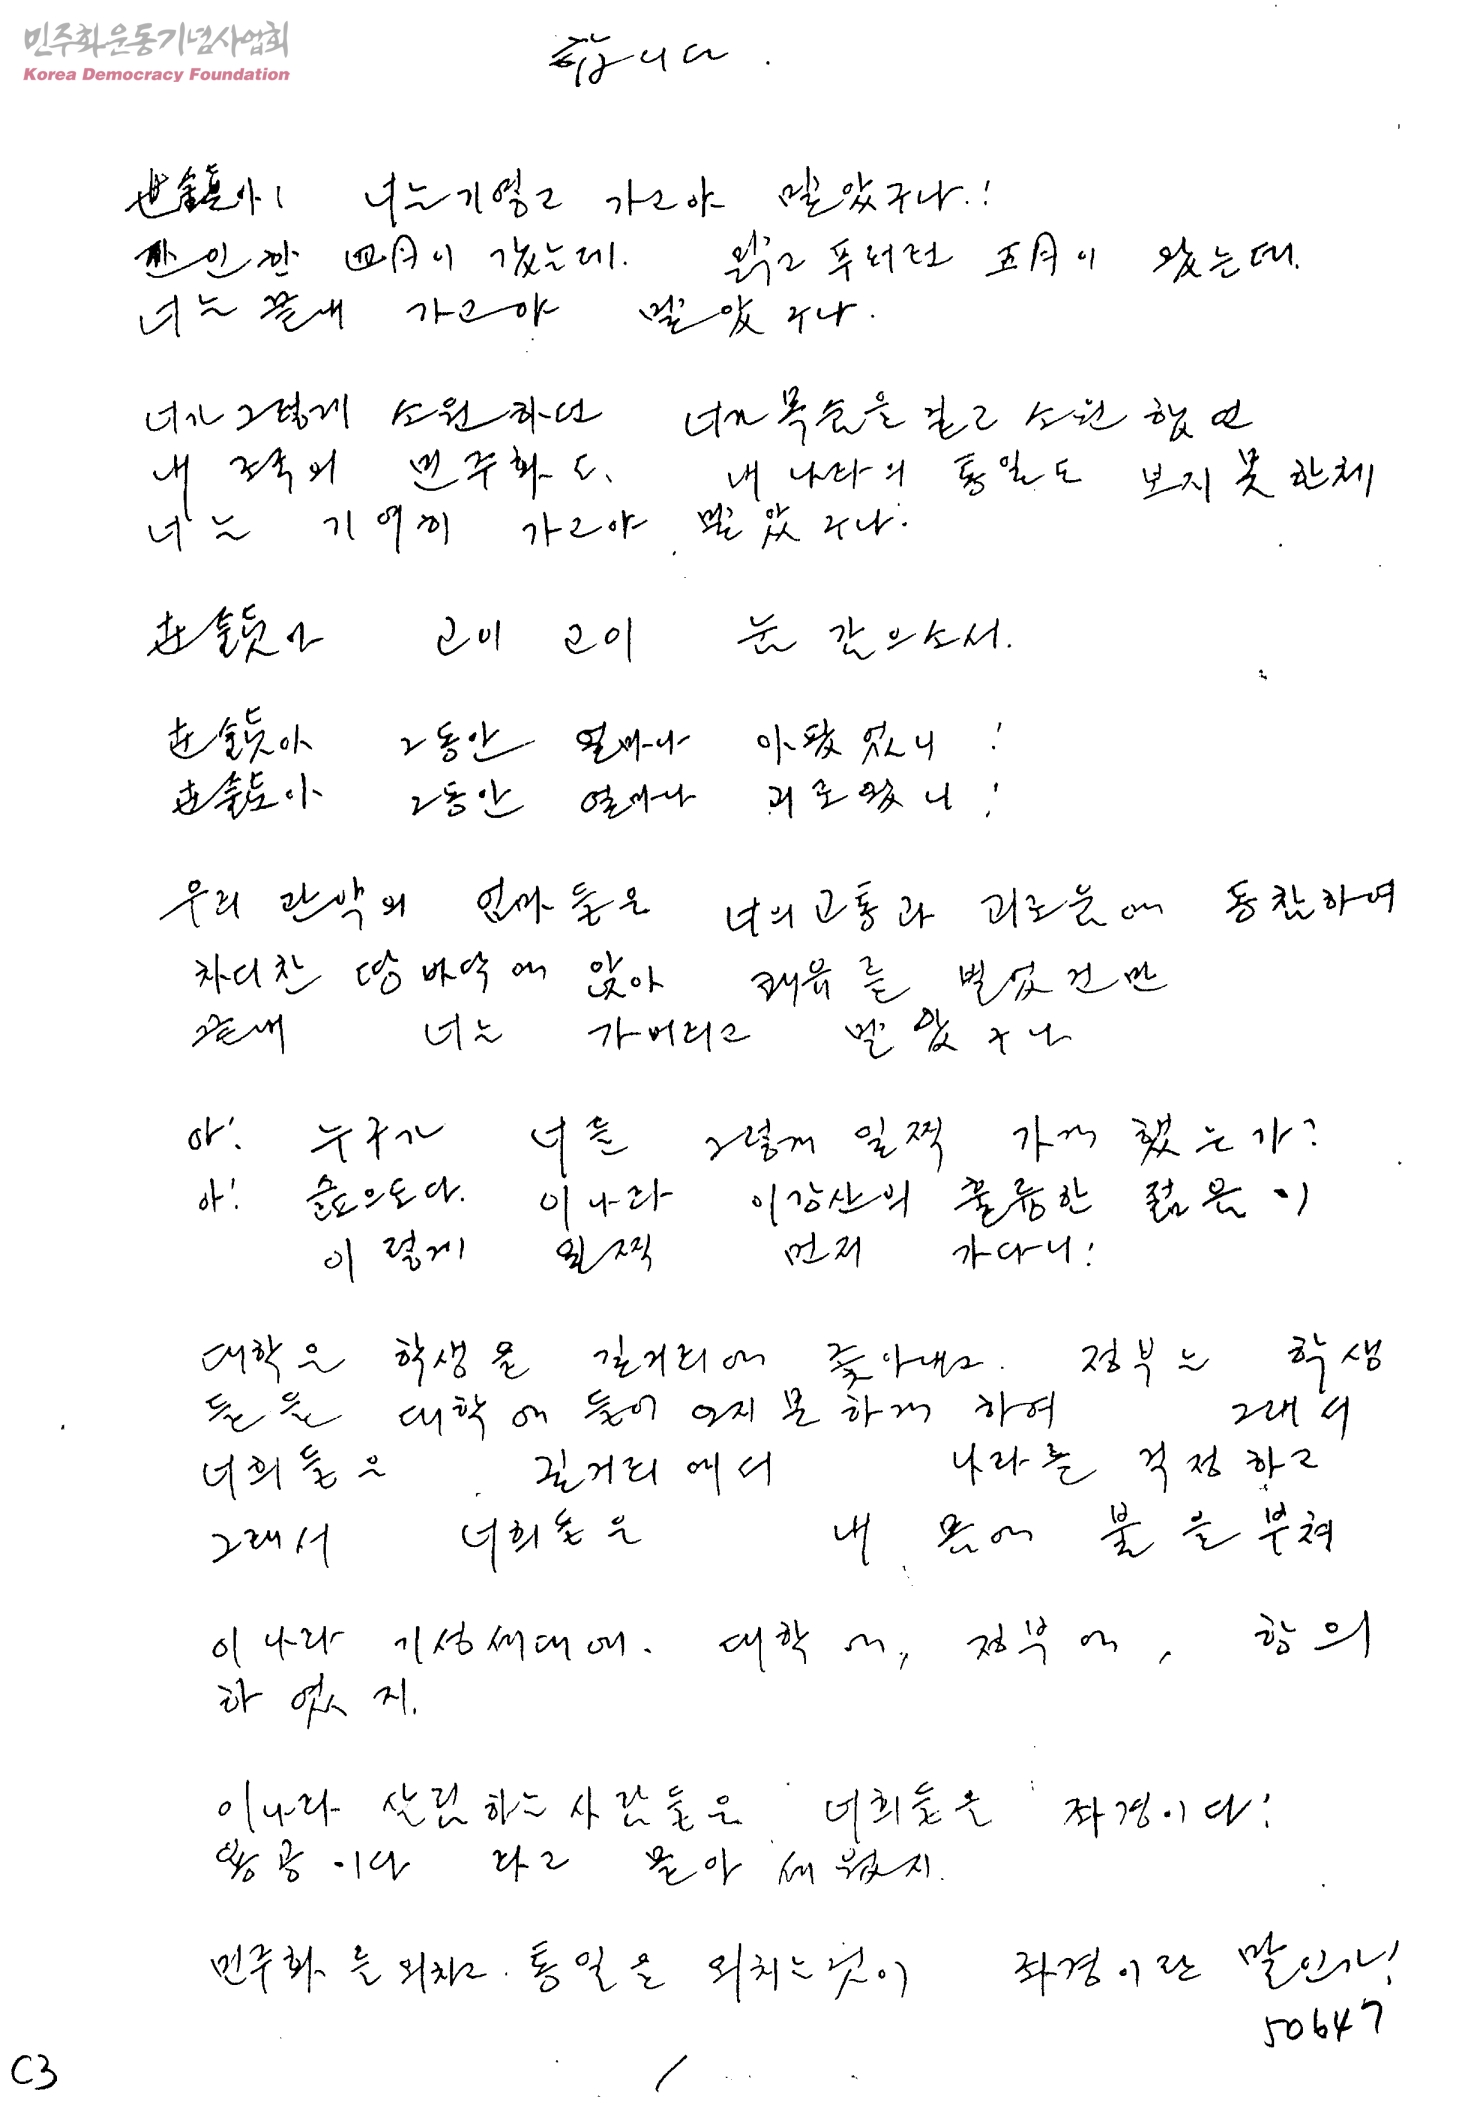 민주화운동기념사업회
Korea Democracy Foundation
합니다.
世鎭아! 너는 기영고 가고야 말았구나!
잔인한 四月이 갔는데. 맑고 푸러런 五月이 왔는데.
너는 끝내 가고야 말았구나.
너가 그렇게 소원하던 너가 목숨을 걸고 소원했던
내 조국의 민주화도. 내 나라의 통일도 보지 못한체
너는 기역히 가고야 말았구나.
世鎭아 고이 고이 눈 감으소서.
世鎭아 그동안 얼마나 아팠었니!
世鎭아 그동안 얼마나 괴로왔니!
우리 관악의 엄마들은 너의 고통과 괴로움에 동참하여
차디찬 땅바닥에 앉아 쾌유를 빌었건만
끝내 너는 가버리고 말았구나
아! 누구가 너를 그렇게 일찍 가게 했는가?
아! 슬프도다. 이나라 이강산의 훌륭한 젊음이
이렇게 일찍 먼저 가다니!
대학은 학생을 길거리에 쫓아내고. 정부는 학생
들을 대학에 들어오지 못하게 하여 그래서
너희들은 길거리에서 나라를 걱정하고
그래서 너희들은 내 몸에 불을 부쳐
이 나라 기성세대에. 대학에, 정부에, 항의
하였지.
이나라 살림하는 사람들은 너희들을 좌경이다!
용공이다 라고 몰아 세웠지.
민주화를 외치고. 통일을 외치는 것이 좌경이란 말인가!
50647
C3